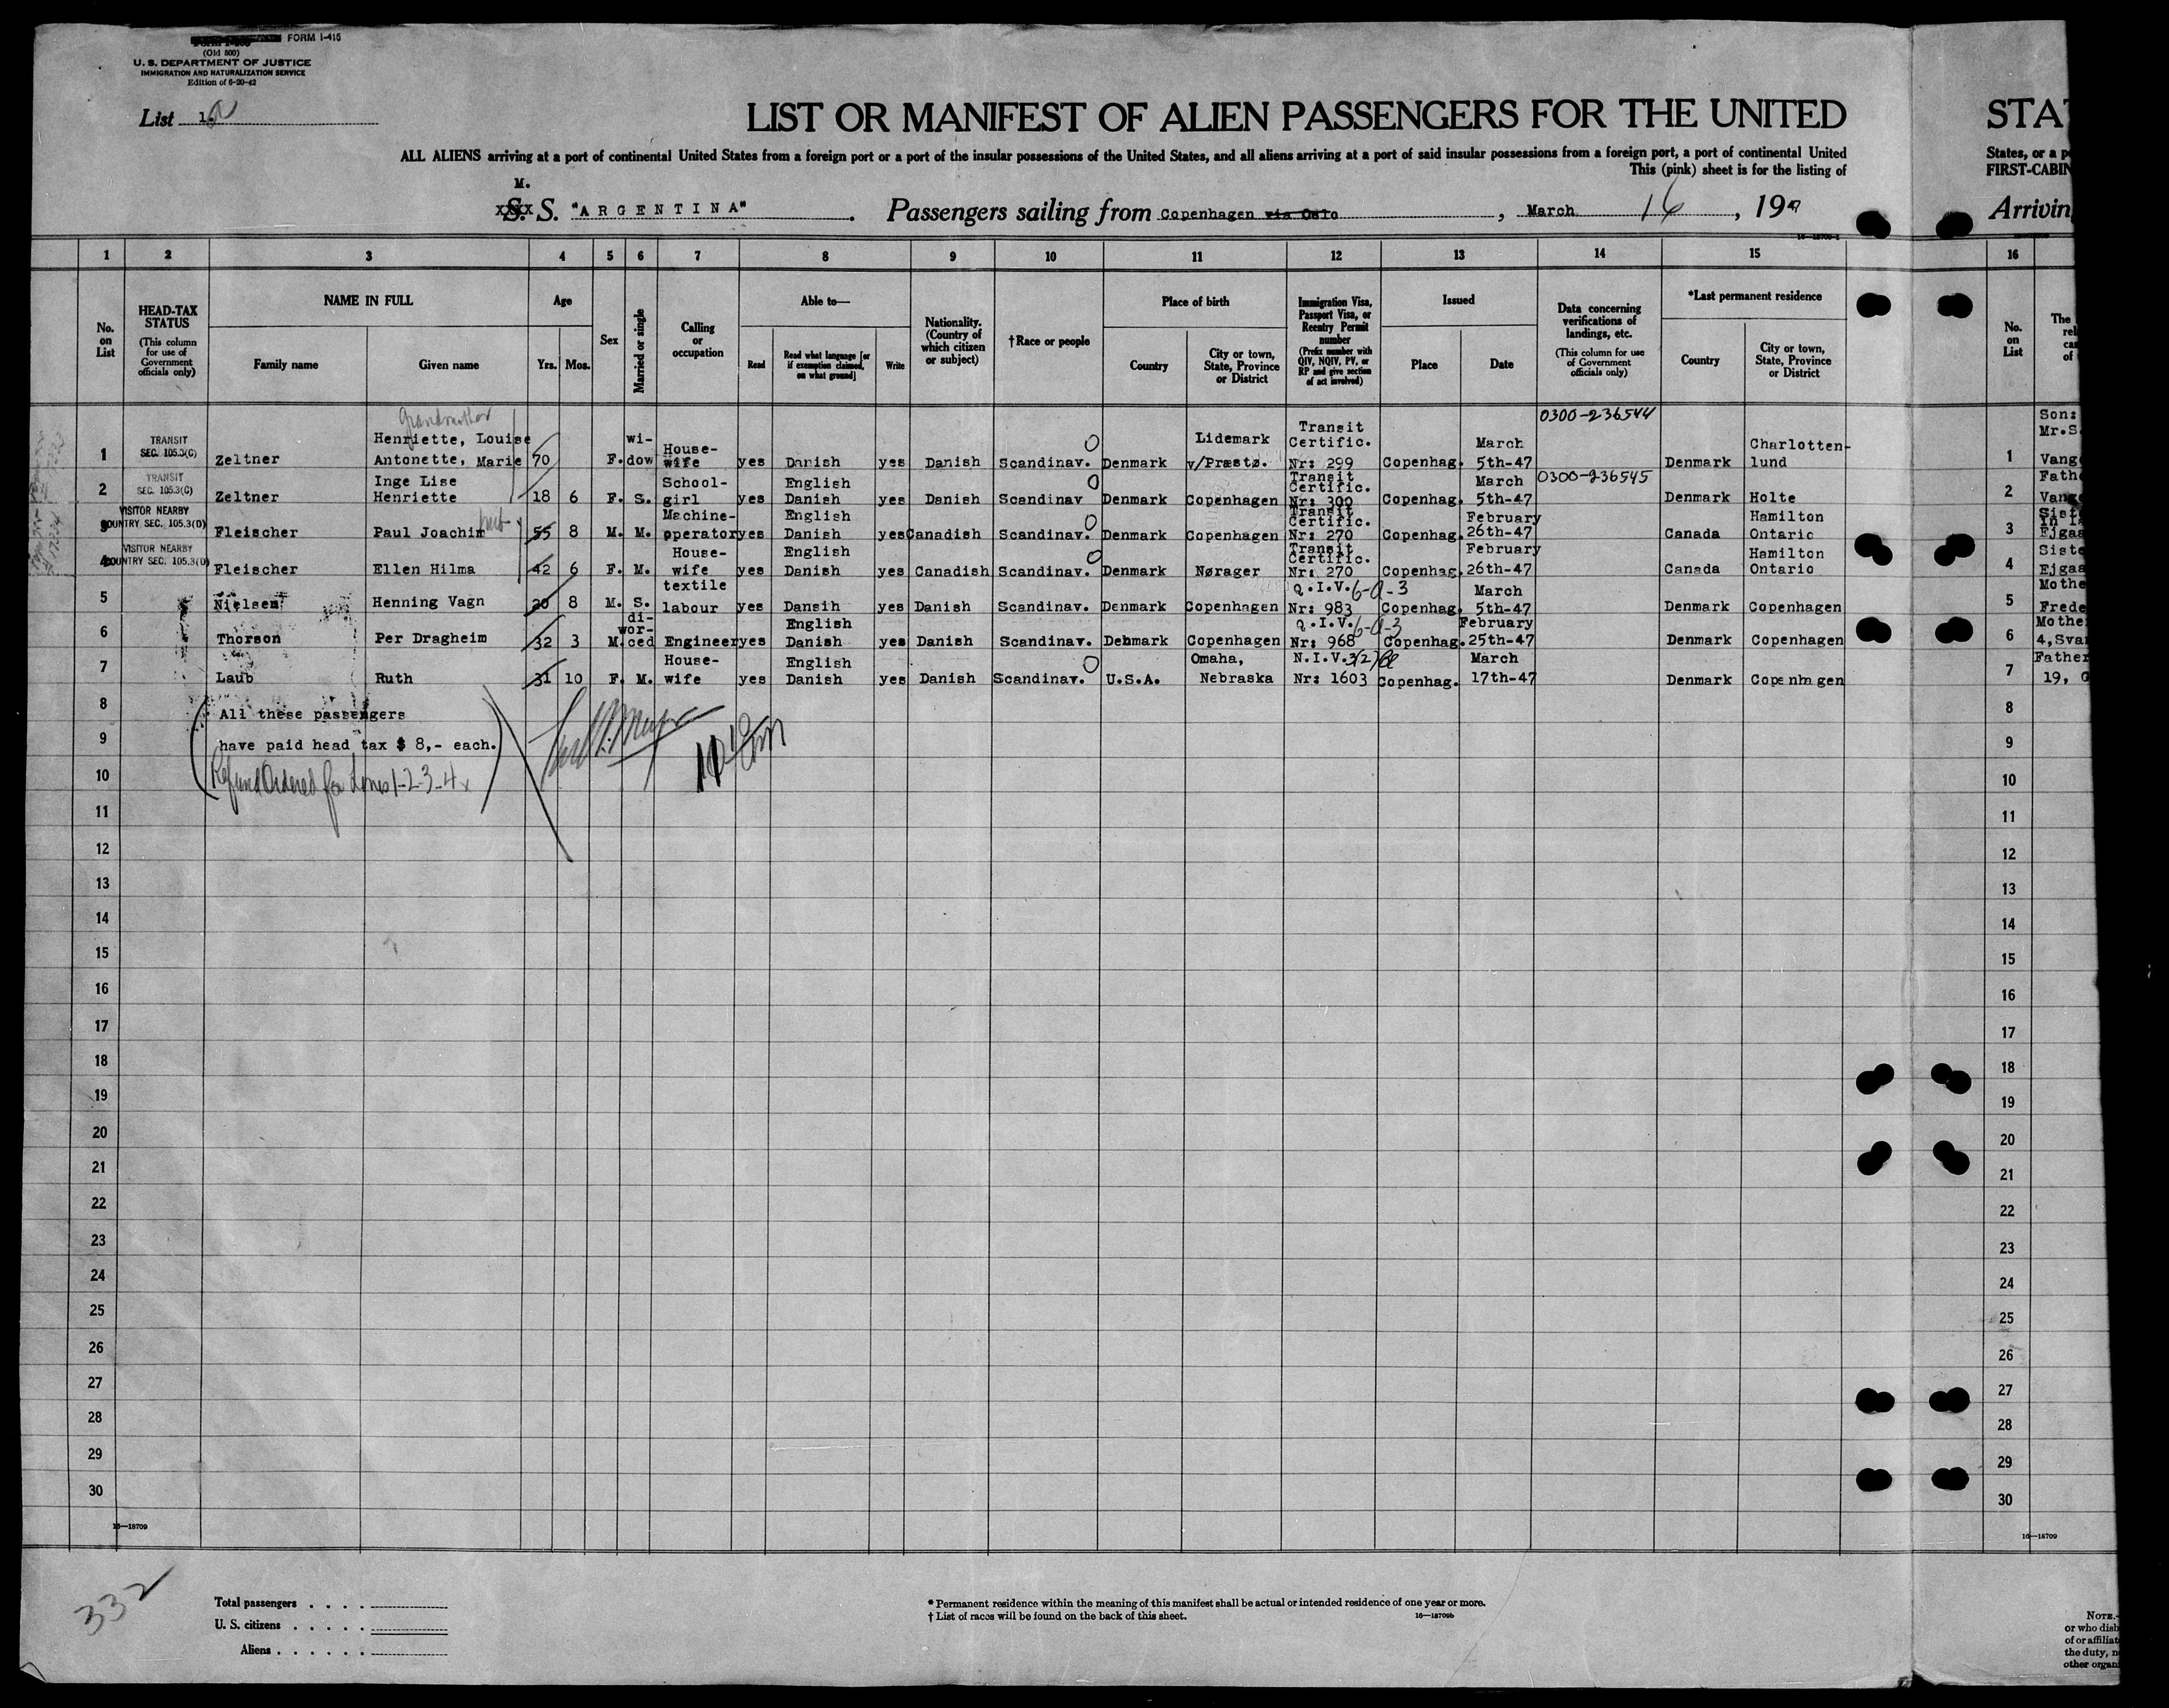 FORM I-415
(Old 500)
U. S. DEPARTMENT OF JUSTICE
IMMIGRATION AND NATURALIZATION SERVICE
Edition of 6-20-42
List 1
LIST OR MANIFEST OF ALIEN PASSENGERS FOR THE UNITED
STA
ALL ALIENS arriving at a port of continental United States from a foreign port or a port of the insular possessions of the United States, and all aliens arriving at a port of said insular possessions from a foreign port, a port of continental United
States, or a p
This (pink) sheet is for the listing of
FIRST-CABIN
M.
S. S. "ARGENTINA" . Passengers sailing from Copenhagen via Oslo , March 16 , 1947
Arrivin
1 2 3 4 5 6 7 8 9 10 11 12 13 14 15 16
No. on List
HEAD-TAX STATUS
(This column for use of Government officials only)
NAME IN FULL
Family name Given name
Age
Yrs. Mos.
Sex
Married or single
Calling or occupation
Able to—
Read Read what language [or if exemption claimed, on what ground] Write
Nationality. (Country of which citizen or subject)
†Race or people
Place of birth
Country City or town, State, Province or District
Immigration Visa, Passport Visa, or Reentry Permit number
(Prefix number with QIV, NQIV, PV, or RP and give section of act involved)
Issued
Place Date
Data concerning verifications of landings, etc.
(This column for use of Government officials only)
*Last permanent residence
Country City or town, State, Province or District
No. on List
The
rel
ca
of
Grandmother
1 TRANSIT SEC. 105.3(C) Zeltner Henriette, Louise Antonette, Marie 70 F. wi-dow House-wife yes Danish yes Danish Scandinav. Denmark Lidemark v/Præstø. Transit Certific. Nr: 299 Copenhag. March 5th-47 0300-236544 Denmark Charlotten-lund 1 Son: Mr.S. Vang
2 TRANSIT SEC. 105.3(C) Zeltner Inge Lise Henriette 18 6 F. S. School-girl yes English Danish yes Danish Scandinav Denmark Copenhagen Transit Certific. Nr: 300 Copenhag. March 5th-47 0300-236545 Denmark Holte 2 Fath Vang
3 VISITOR NEARBY COUNTRY SEC. 105.3(D) Fleischer Paul Joachim 55 8 M. M. Machine-operator yes English Danish yes Canadish Scandinav. Denmark Copenhagen Transit Certific. Nr: 270 Copenhag. February 26th-47 Canada Hamilton Ontario 3 Siste Ejgaa
4 VISITOR NEARBY COUNTRY SEC. 105.3(D) Fleischer Ellen Hilma 42 6 F. M. House-wife yes English Danish yes Canadish Scandinav. Denmark Nørager Transit Certific. Nr: 270 Copenhag. February 26th-47 Canada Hamilton Ontario 4 Siste Ejgaa
5 Nielsen Henning Vagn 20 8 M. S. textile labour yes Dansih yes Danish Scandinav. Denmark Copenhagen Q.I.V. 6-a-3 Nr: 983 Copenhag. March 5th-47 Denmark Copenhagen 5 Mothe Frede
6 Thorson Per Dragheim 32 3 M. di-vor-ced Engineer yes English Danish yes Danish Scandinav. Denmark Copenhagen Q.I.V. 6-a-3 Nr: 968 Copenhag. February 25th-47 Denmark Copenhagen 6 Mothe 4,Sva
7 Laub Ruth 31 10 F. M. House-wife yes English Danish yes Danish Scandinav. U.S.A. Omaha, Nebraska N.I.V. 3(2) Nr: 1603 Copenhag. March 17th-47 Denmark Copenhagen 7 Father 19,
8 All these passengers 8
9 have paid head tax $ 8,- each. 9
10 Refund Ordered for Lines 1-2-3-4 10
11 11
12 12
13 13
14 14
15 15
16 16
17 17
18 18
19 19
20 20
21 21
22 22
23 23
24 24
25 25
26 26
27 27
28 28
29 29
30 30
16—18709 16—18709
332
Total passengers . . . .
U. S. citizens . . . . .
Aliens . . . . . .
* Permanent residence within the meaning of this manifest shall be actual or intended residence of one year or more.
† List of races will be found on the back of this sheet. 16—18709b
NOTE.—
or who disb
of or affiliat
the duty, n
other organ